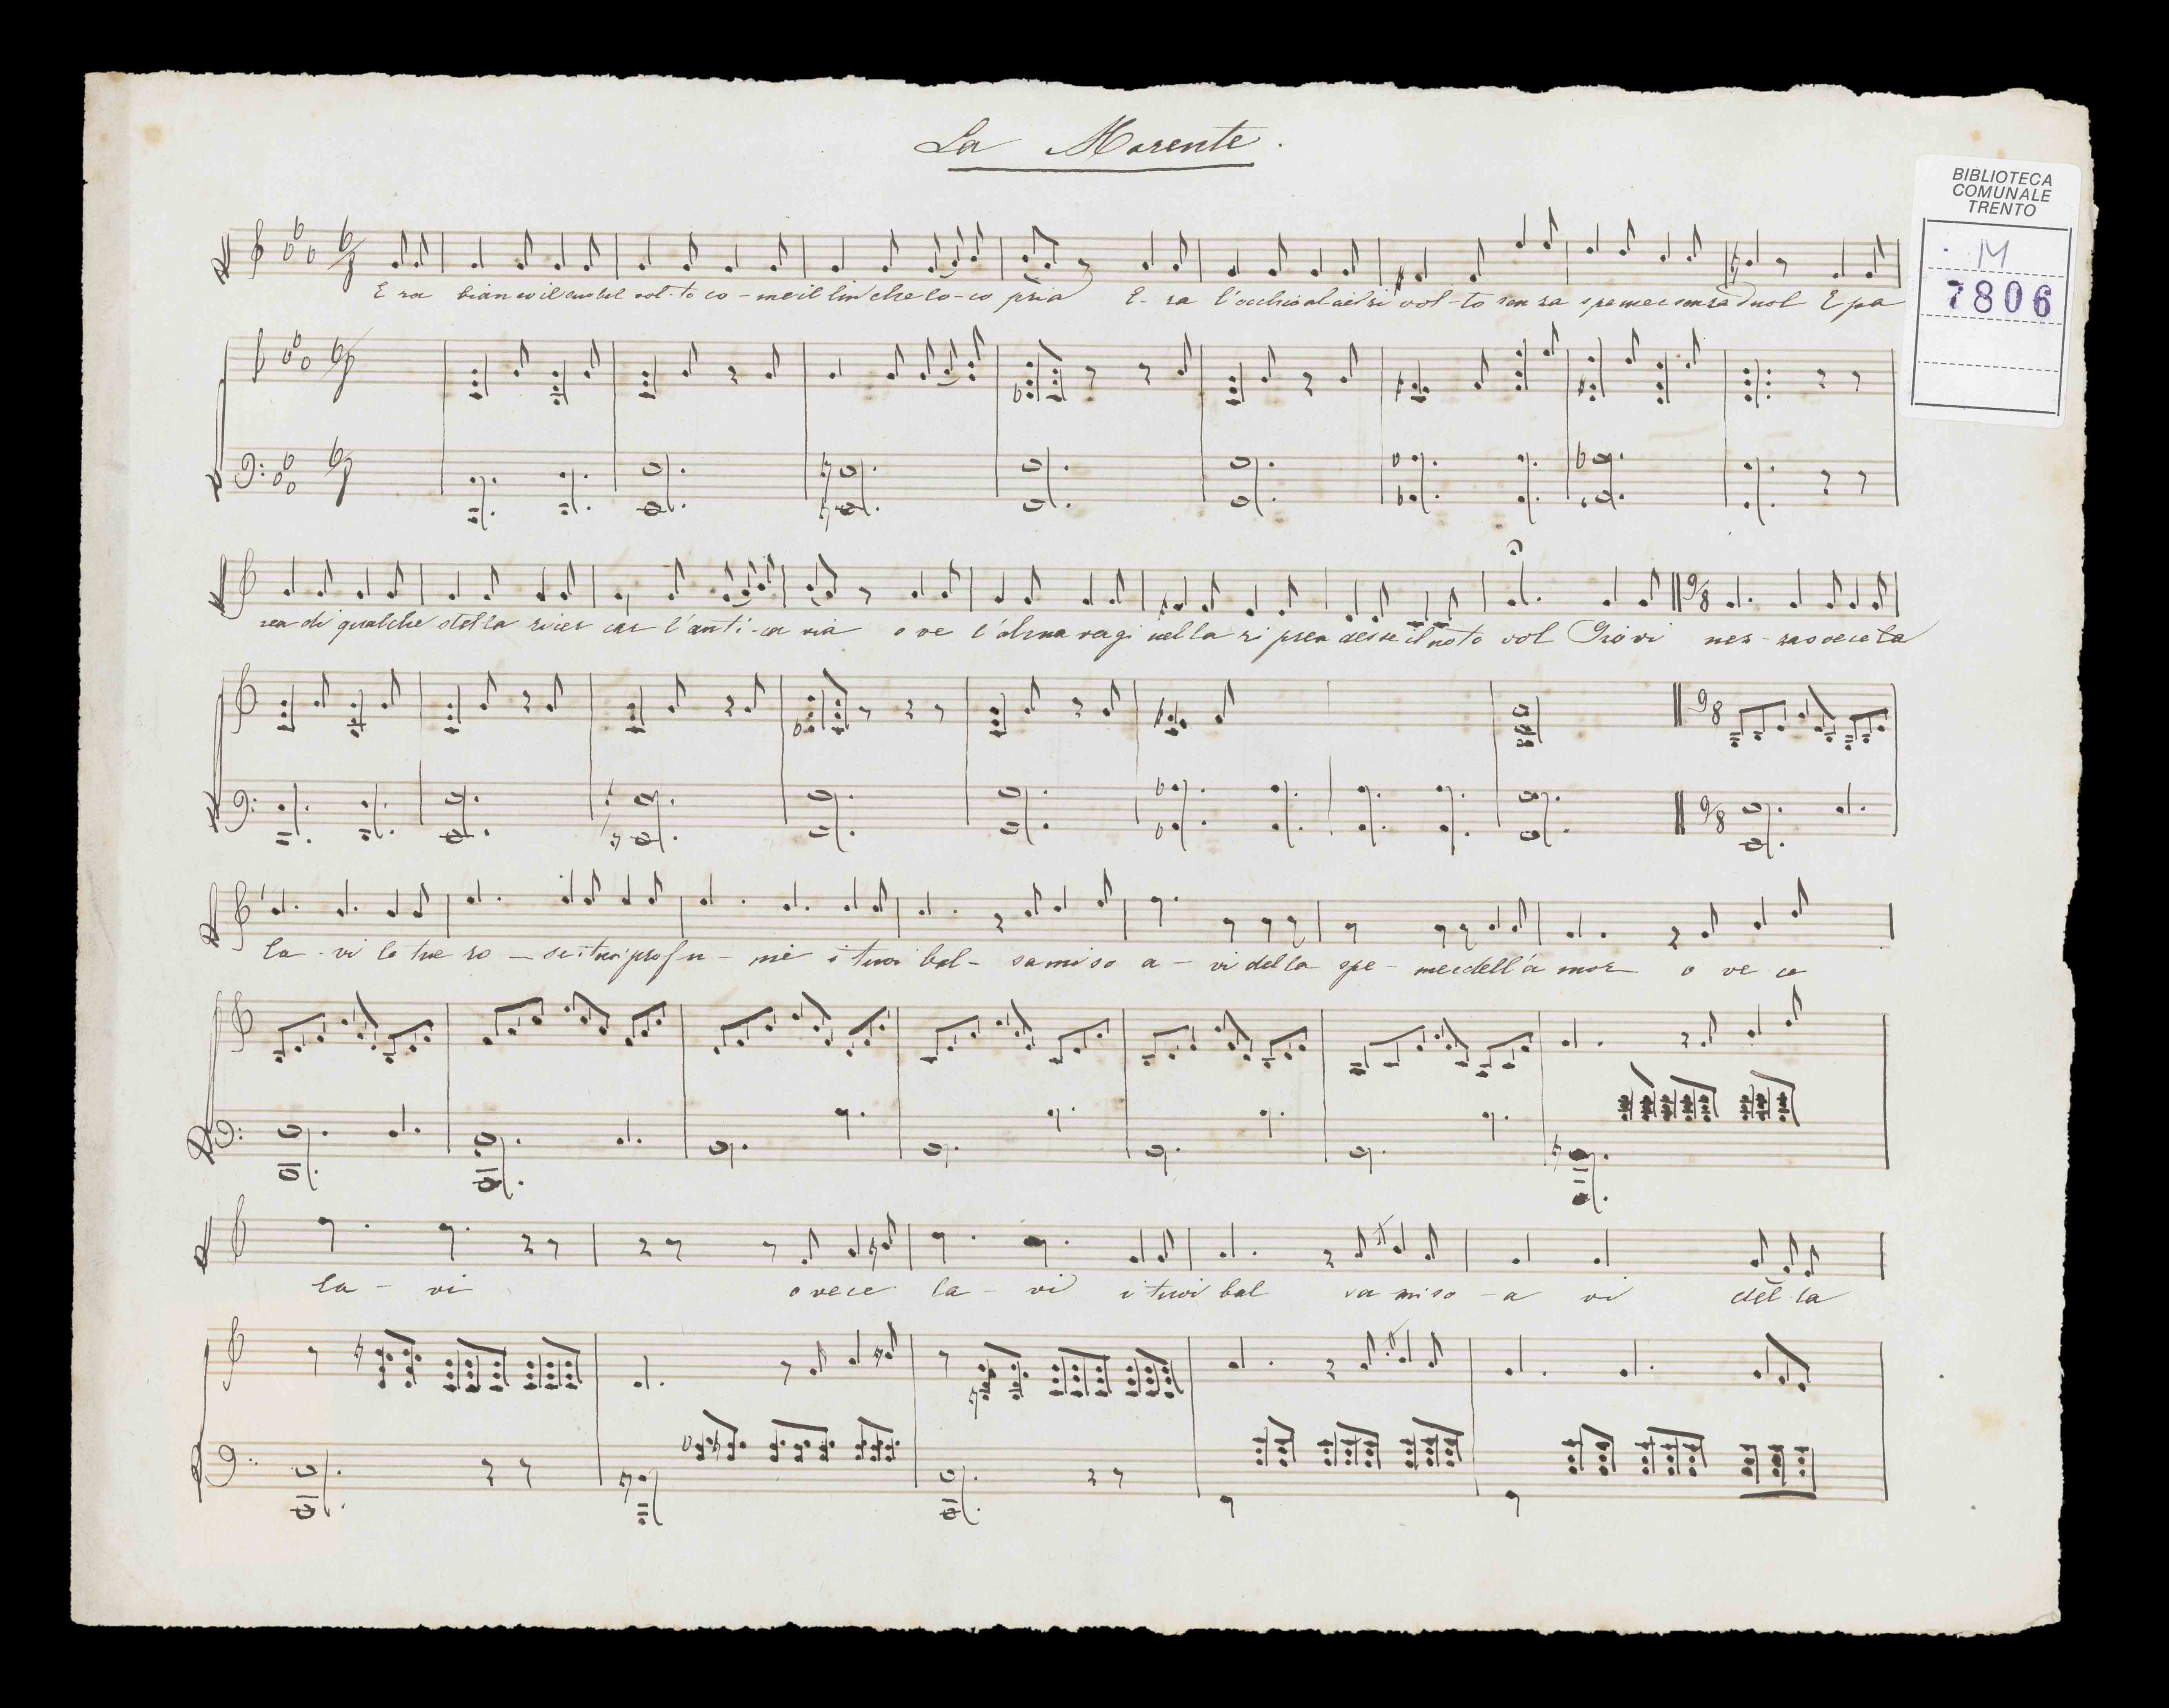 La Morente.
BIBLIOTECA
COMUNALE
TRENTO
M
7806
E ra bianco il suo bel vol-to co-me il lin che lo co pria E-ra l'occhio al ciel ri vol-to sen za speme e senza duol E pa
rea di qualche stella ricer car l'anti-ca via o ve l'alma vagi nella ri pren desse il noto vol Giovi nez-za o ve ce la
la-vi le tue ro-se i tuoi profu-mi i tuoi bal-sami so a-vi della spe-me e dell'a mor o ve ce
la-vi o ve ce la-vi i tuoi bal sa mi so-a vi del-la